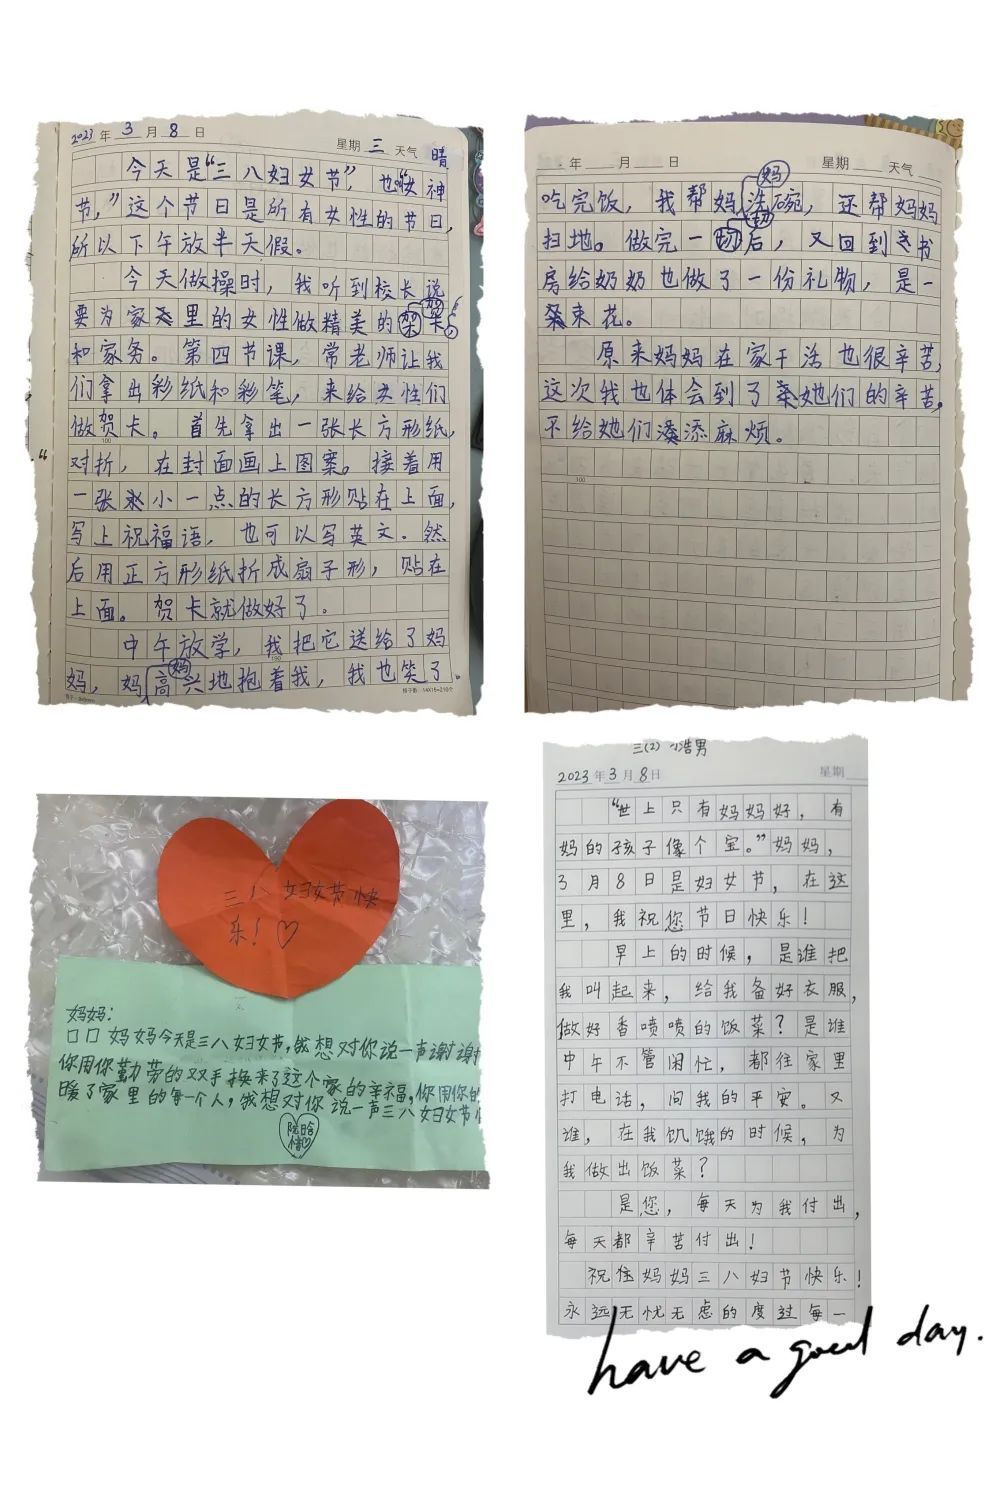 2023年3月8日 星期三 天气晴
今天是“三八妇女节”，也“女神
节，”这个节日是所有女性的节日，
所以下午放半天假。
今天做操时，我听到校长说
要为家里的女性做精美的贺卡
和家务。第四节课，常老师让我
们拿出彩纸和彩笔，来给女性们
做贺卡。首先拿出一张长方形纸，
对折，在封面画上图案。接着用
一张小一点的长方形贴在上面，
写上祝福语，也可以写英文。然
后用正方形纸折成扇子形，贴在
上面。贺卡就做好了。
中午放学，我把它送给了妈
妈，妈妈高兴地抱着我，我也笑了。
年 月 日 星期 天气
吃完饭，我帮妈妈洗碗，还帮妈妈
扫地。做完一切后，又回到书
房给奶奶也做了一份礼物，是一
束花。
原来妈妈在家干活也很辛苦，
这次我也体会到了她们的辛苦，
不给她们添麻烦。
三八妇女节快
乐！♡
妈妈：
口口妈妈今天是三八妇女节，我想对你说一声谢谢
你用你勤劳的双手换来了这个家的幸福，你用你的
暖了家里的每一个人，我想对你说一声三八妇女节
三(2) 浩男
2023年3月8日 星期
“世上只有妈妈好，有
妈的孩子像个宝。”妈妈，
3月8日是妇女节，在这
里，我祝您节日快乐！
早上的时候，是谁把
我叫起来，给我备好衣服，
做好香喷喷的饭菜？是谁
中午不管闲忙，都往家里
打电话，问我的平安。又
谁，在我饥饿的时候，为
我做出饭菜？
是您，每天为我付出，
每天都辛苦付出！
祝住妈妈三八妇节快乐！
永远无忧无虑的度过每一
have a good day.